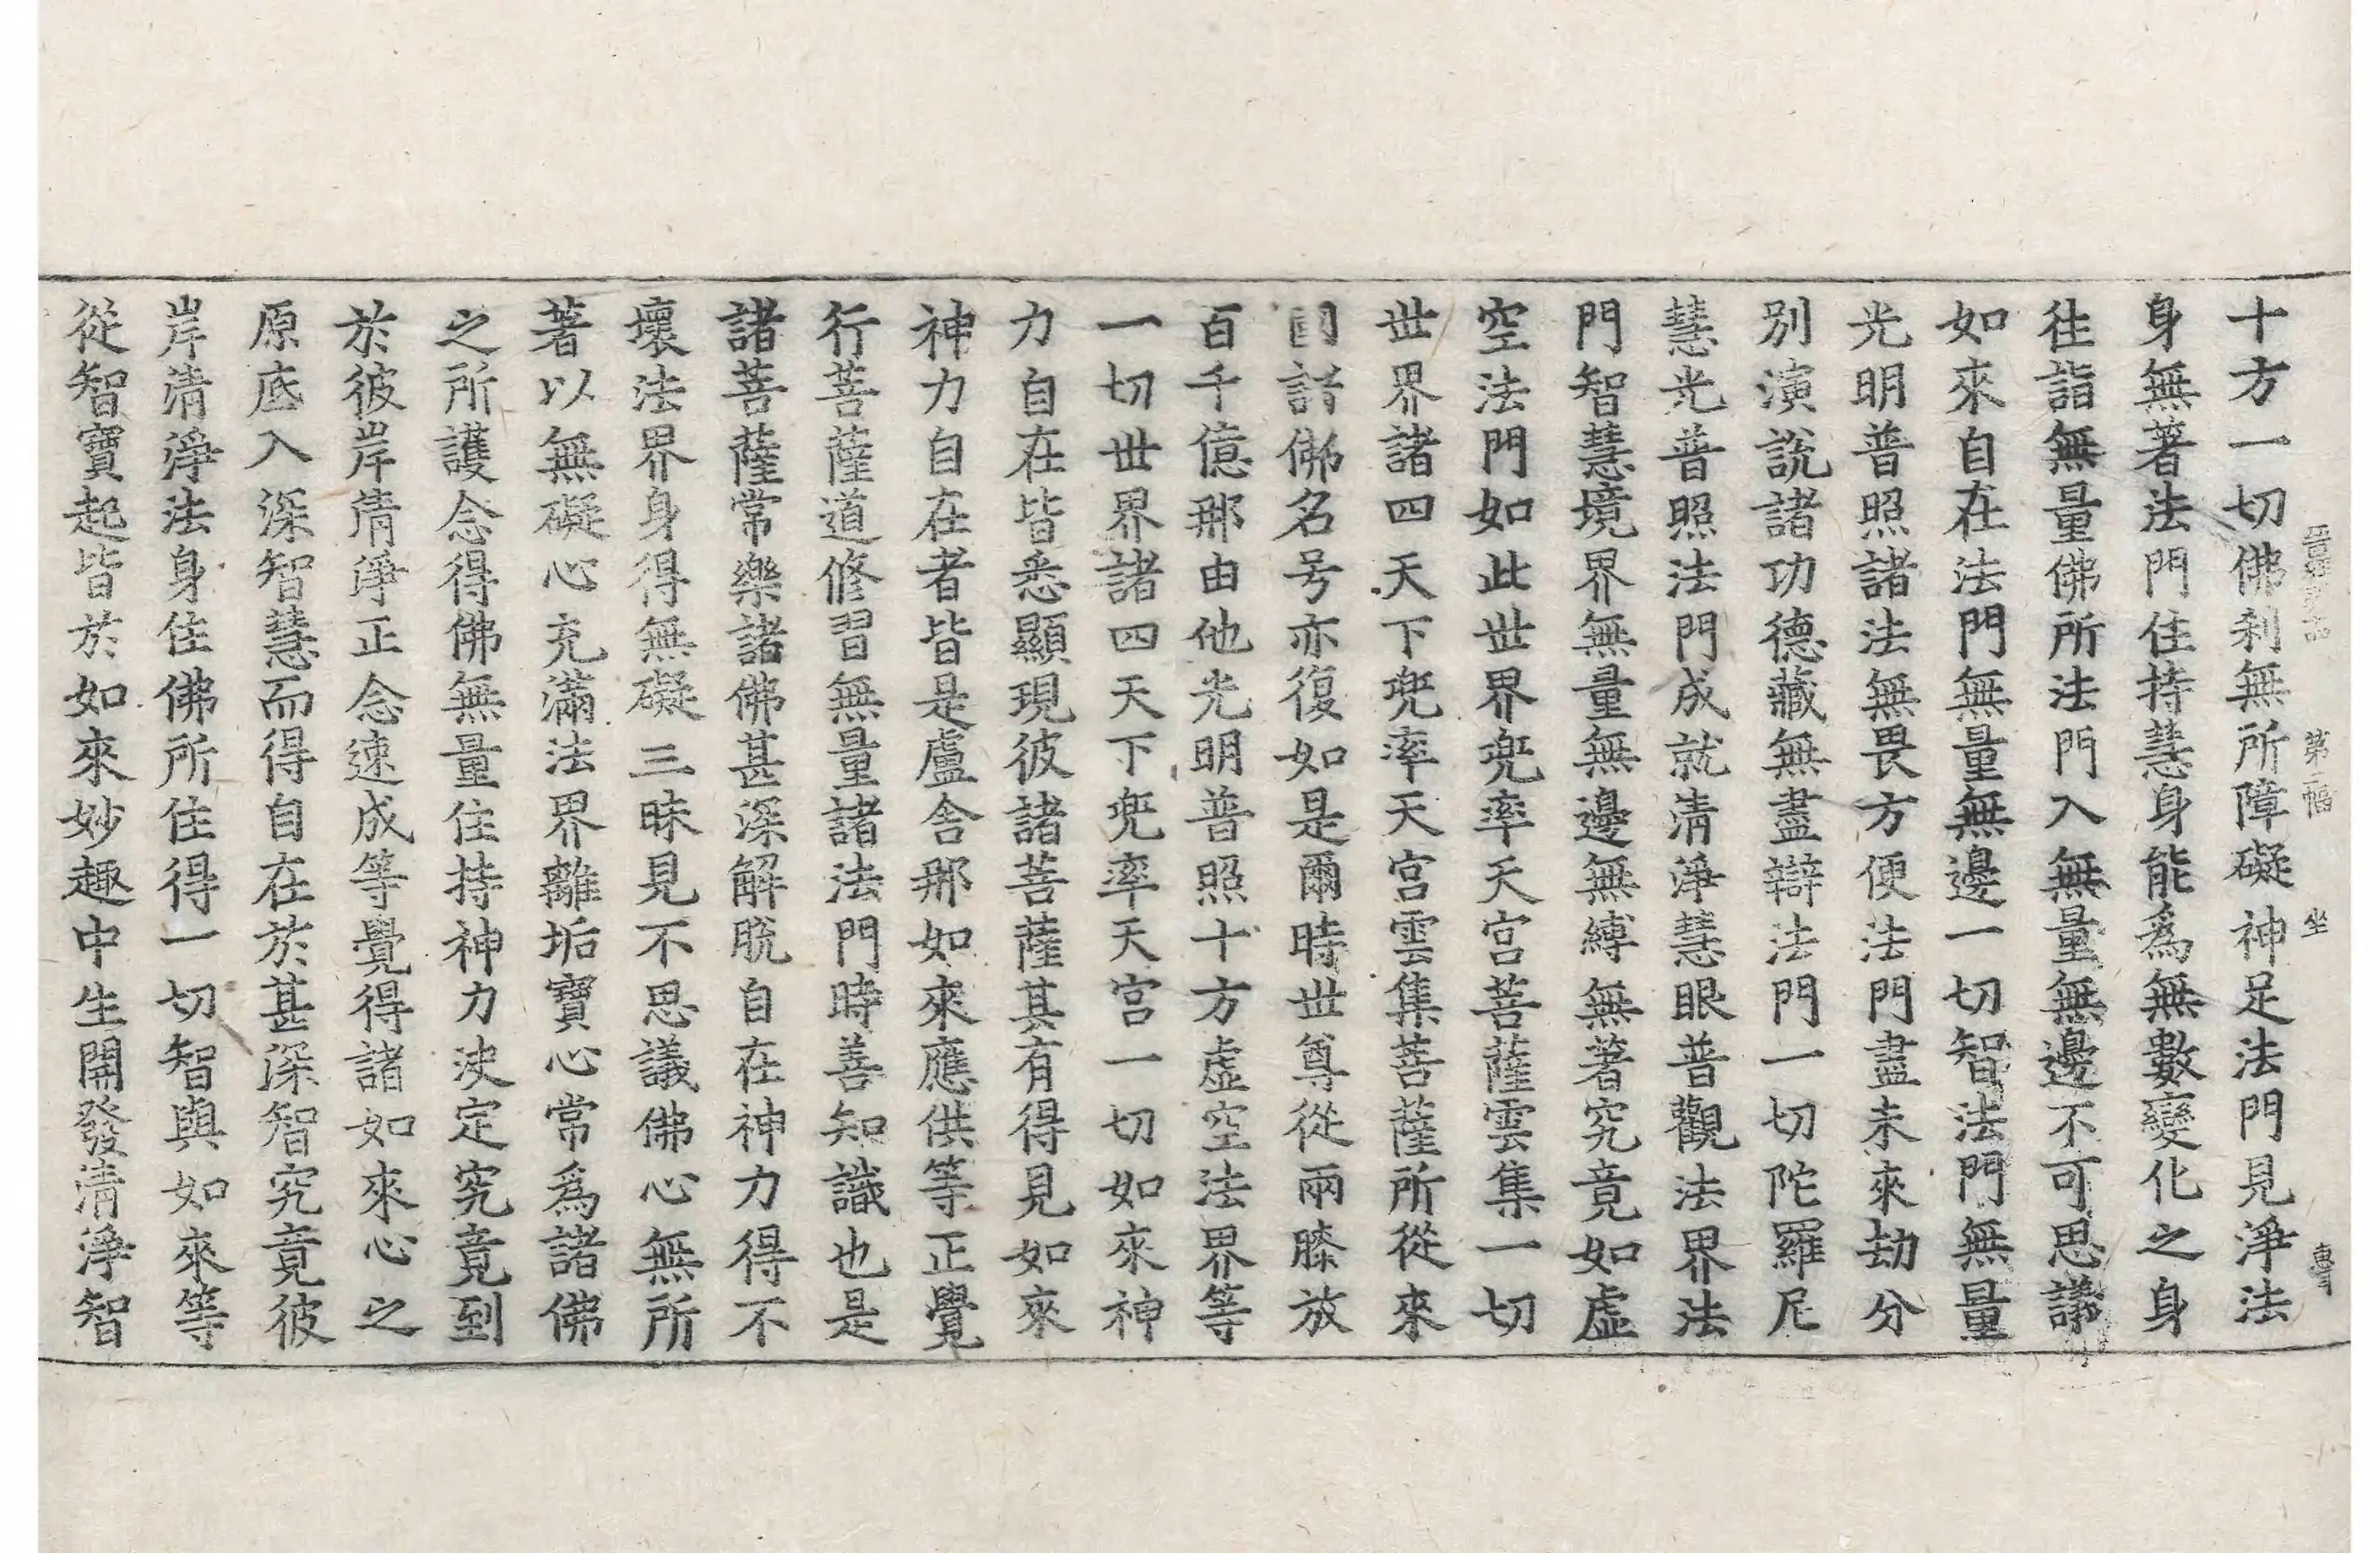 十方一切佛刹無所障礙神足法門見淨法
身無著法門住持慧身能爲無數變化之身
往詣無量佛所法門入無量無邊不可思議
如來自在法門無量無邊一切智法門無量
光明普照諸法無畏方便法門盡未來劫分
別演說諸功德藏無盡辯法門一切陀羅尼
慧光普照法門成就清淨慧眼普觀法界法
門智慧境界無量無邊無縛無著究竟如虛
空法門如此世界兜率天宮菩薩雲集一切
世界諸四天下兜率天宮雲集菩薩所從來
國諸佛名号亦復如是爾時世尊從兩膝放
百千億那由他光明普照十方虛空法界等
一切世界諸四天下兜率天宮一切如來神
力自在皆悉顯現彼諸菩薩其有得見如來
神力自在者皆是盧舍那如來應供等正覺
行菩薩道修習無量諸法門時善知識也是
諸菩薩常樂諸佛甚深解脫自在神力得不
壞法界身得無礙三昧見不思議佛心無所
著以無礙心充滿法界離垢寶心常爲諸佛
之所護念得佛無量住持神力決定究竟到
於彼岸清淨正念速成等覺得諸如來心之
原底入深智慧而得自在於甚深智究竟彼
岸清淨法身住佛所住得一切智與如來等
從智寶起皆於如來妙趣中生開發清淨智